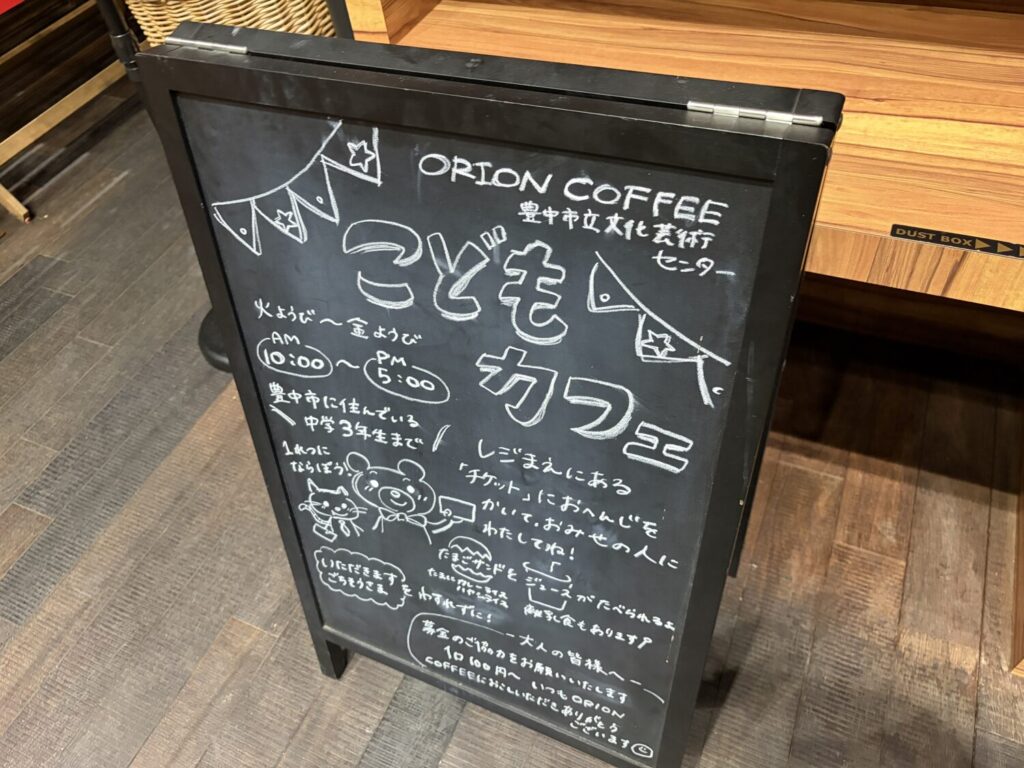 ORION COFFEE
豊中市立文化芸術
センター
こども
カフェ
火ようび〜金ようび
AM
10:00
〜
PM
5:00
豊中市に住んでいる
中学3年生まで
1れつに
ならぼう!
レジまえにある
「チケット」におへんじを
かいて、おみせの人に
わたしてね!
たまごサンドと
ジュースがたべられるよ
たまにカレーライス
ハヤシライス
離乳食もあります
いただきます
ごちそうさま
をわすれずに!
ー大人の皆様へー
募金のご協力をお願いいたします
1口100円〜 いつもORION
COFFEEにおこしいただきありがとう
ございます
DUST BOX